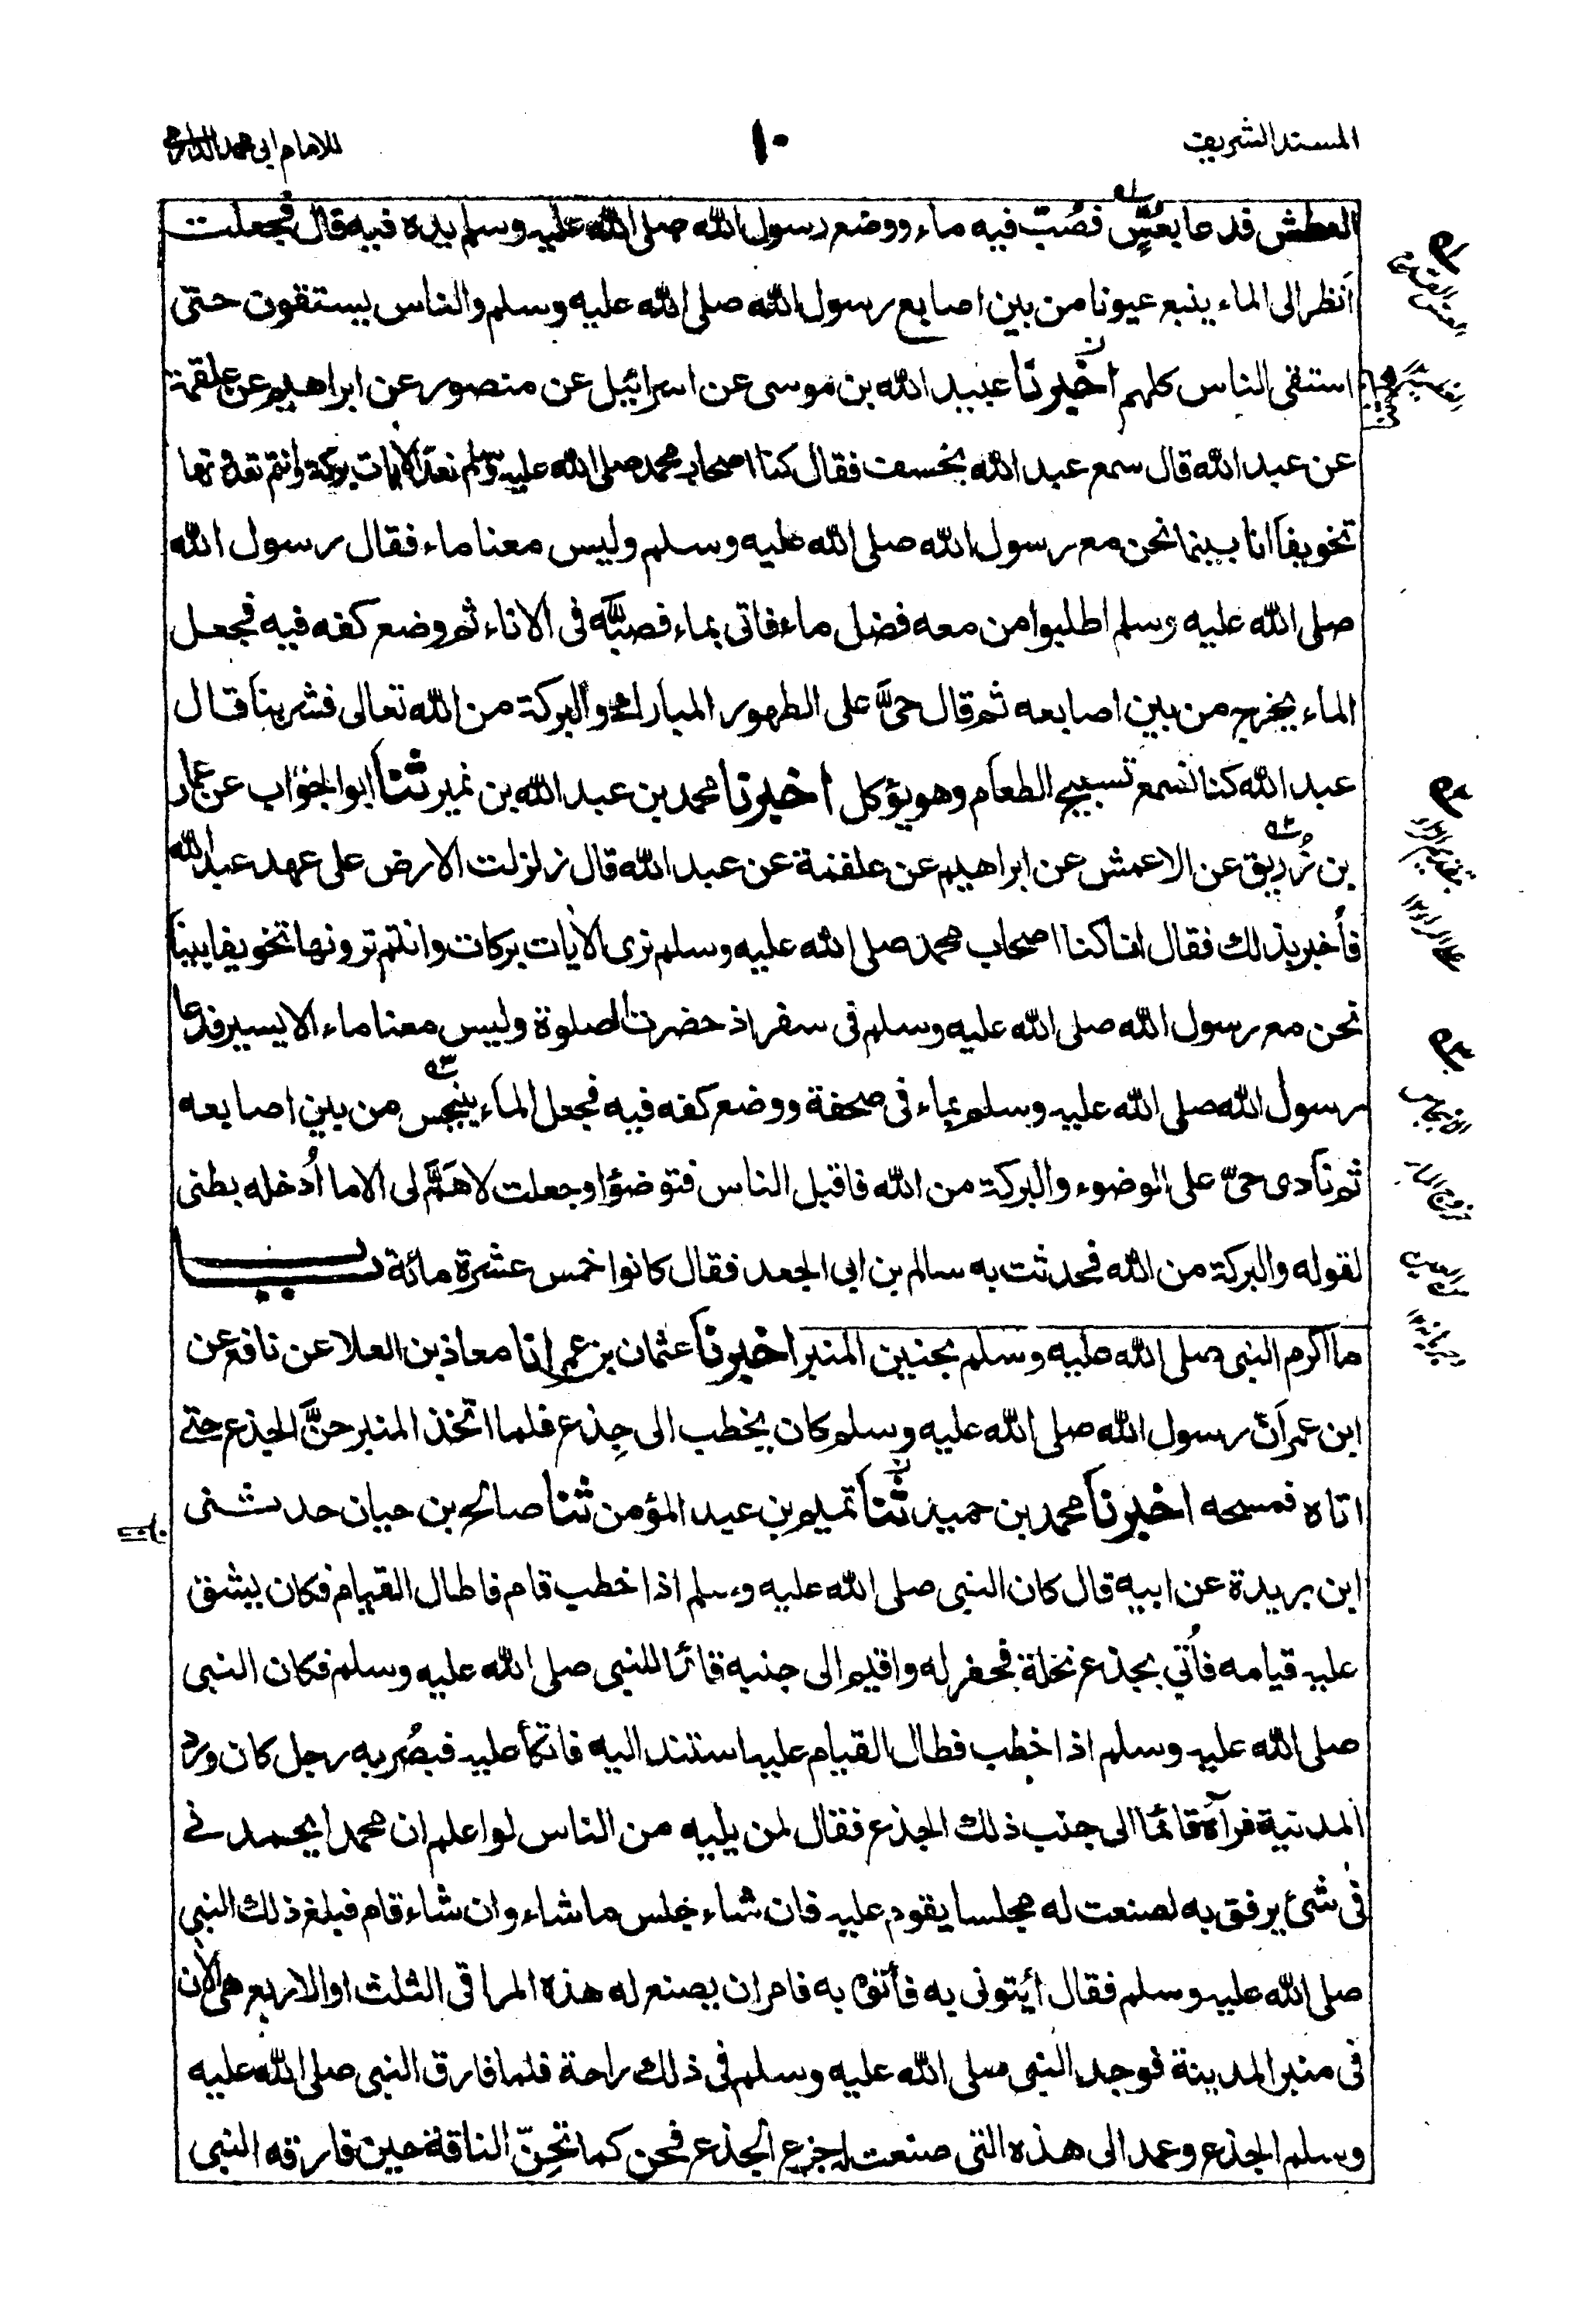 المسند الشريف
١٠
للامام ابي محمد الدارمي
العطش فدعا بعُسٍّ فصُبّ فيه ماء ووضع رسول الله صلى الله عليه وسلم يده فيه قال فجعلت
أنظر الى الماء ينبع عيونا من بين اصابع رسول الله صلى الله عليه وسلم والناس يستقون حتى
استقى الناس كلهم اخبرنا عبيد الله بن موسى عن اسرائيل عن منصور عن ابراهيم عن علقمة
عن عبد الله قال سمع عبد الله بخسف فقال كنا اصحاب محمد صلى الله عليه وسلم نعد الآيات بركة وانتم تعدونها
تخويفا انا بينما نحن مع رسول الله صلى الله عليه وسلم وليس معنا ماء فقال رسول الله
صلى الله عليه وسلم اطلبوا من معه فضل ماء فاتى بماء فصبَّه فى الاناء ثم وضع كفه فيه فجعل
الماء يخرج من بين اصابعه ثم قال حىَّ على الطهور المبارك والبركة من الله تعالى فشربنا قال
عبد الله كنا نسمع تسبيح الطعام وهو يؤكل اخبرنا محمد بن عبد الله بن نمير ثنا ابو الجوّاب عن عمار
بن زُريق عن الاعمش عن ابراهيم عن علقمة عن عبد الله قال زلزلت الارض على عهد عبد الله
فأُخبر بذلك فقال انا كنا اصحاب محمد صلى الله عليه وسلم نرى الآيات بركات وانتم ترونها تخويفا بينا
نحن مع رسول الله صلى الله عليه وسلم فى سفر اذ حضرت الصلوة وليس معنا ماء الا يسير فدعا
رسول الله صلى الله عليه وسلم بماء فى صحفة ووضع كفه فيه فجعل الماء ينبجس من بين اصابعه
ثم نادى حىّ على الوضوء والبركة من الله فاقبل الناس فتوضؤا وجعلت لا هَمَّ لى الا ما أُدخله بطنى
لقوله والبركة من الله فحدثت به سالم بن ابى الجعد فقال كانوا خمس عشرة مائة باب
ما اكرم النبى صلى الله عليه وسلم بحنين المنبر اخبرنا عثمان بن عمر انا معاذ بن العلا عن نافع عن
ابن عمر أن رسول الله صلى الله عليه وسلم كان يخطب الى جِذع فلما اتخذ المنبر حنَّ الجذع حتى
اتاه فمسحه اخبرنا محمد بن حميد ثنا تميم بن عبد المؤمن ثنا صالح بن حيان حدثنى
ابن بريدة عن ابيه قال كان النبى صلى الله عليه وسلم اذا خطب قام فاطال القيام فكان يشق
عليه قيامه فأُتي بجذع نخلة فحفر له واقيم الى جنبه قائما للنبى صلى الله عليه وسلم فكان النبى
صلى الله عليه وسلم اذا خطب فطال القيام عليه استند اليه فاتكأ عليه فبصُر به رجل كان ورد
المدنية فرآه قائما الى جنب ذلك الجذع فقال لمن يليه من الناس لو اعلم ان محمدا يحمد نے
فى شئ يرفق به لصنعت له مجلسا يقوم عليه فان شاء جلس ما شاء وان شاء قام فبلغ ذلك النبي
صلى الله عليه وسلم فقال أيتونى به فأتوه به فامر ان يصنع له هذه المراقى الثلث او الاربع هى الآن
فى منبر المدينة فوجد النبى صلى الله عليه وسلم فى ذلك راحة فلما فارق النبى صلى الله عليه
وسلم الجذع وعمد الى هذه التى صنعت له جزع الجذع فحن كما تحنّ الناقة حين فارقه النبى